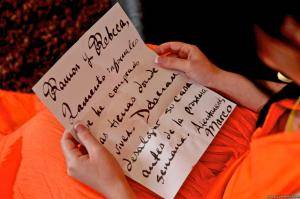 Ramon y Rebecca,
Lamento informarles
que he comprado
las tierras donde
viven. Deberan
desalojar
antes de la proxima
semana.
Atentamente,
Marco